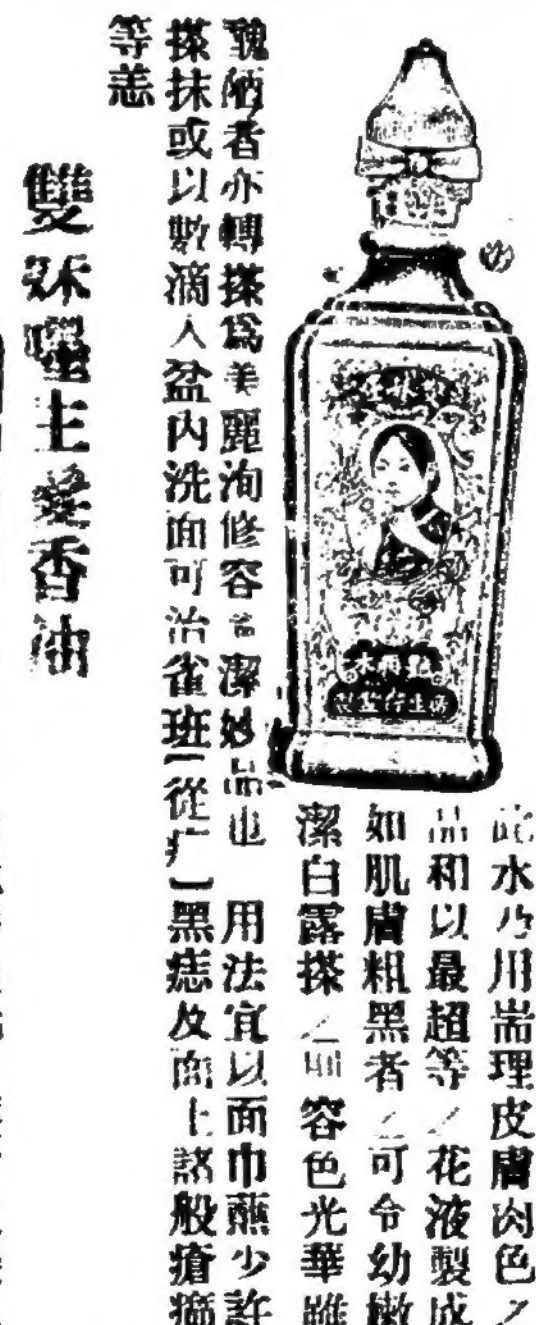 此水乃用耑理皮膚肉色之
品和以最超等之花液製成
如肌膚粗黑者之可令幼嫩
潔白露搽之則容色光華雖
醜陋者亦轉搽爲美麗洵修容潔妙品也　用法宜以面巾蘸少許
搽抹或以數滴入盆內洗面可治雀班【從疒】黑痣及面上諸般瘡
等恙
雙妹嚜生髮香油